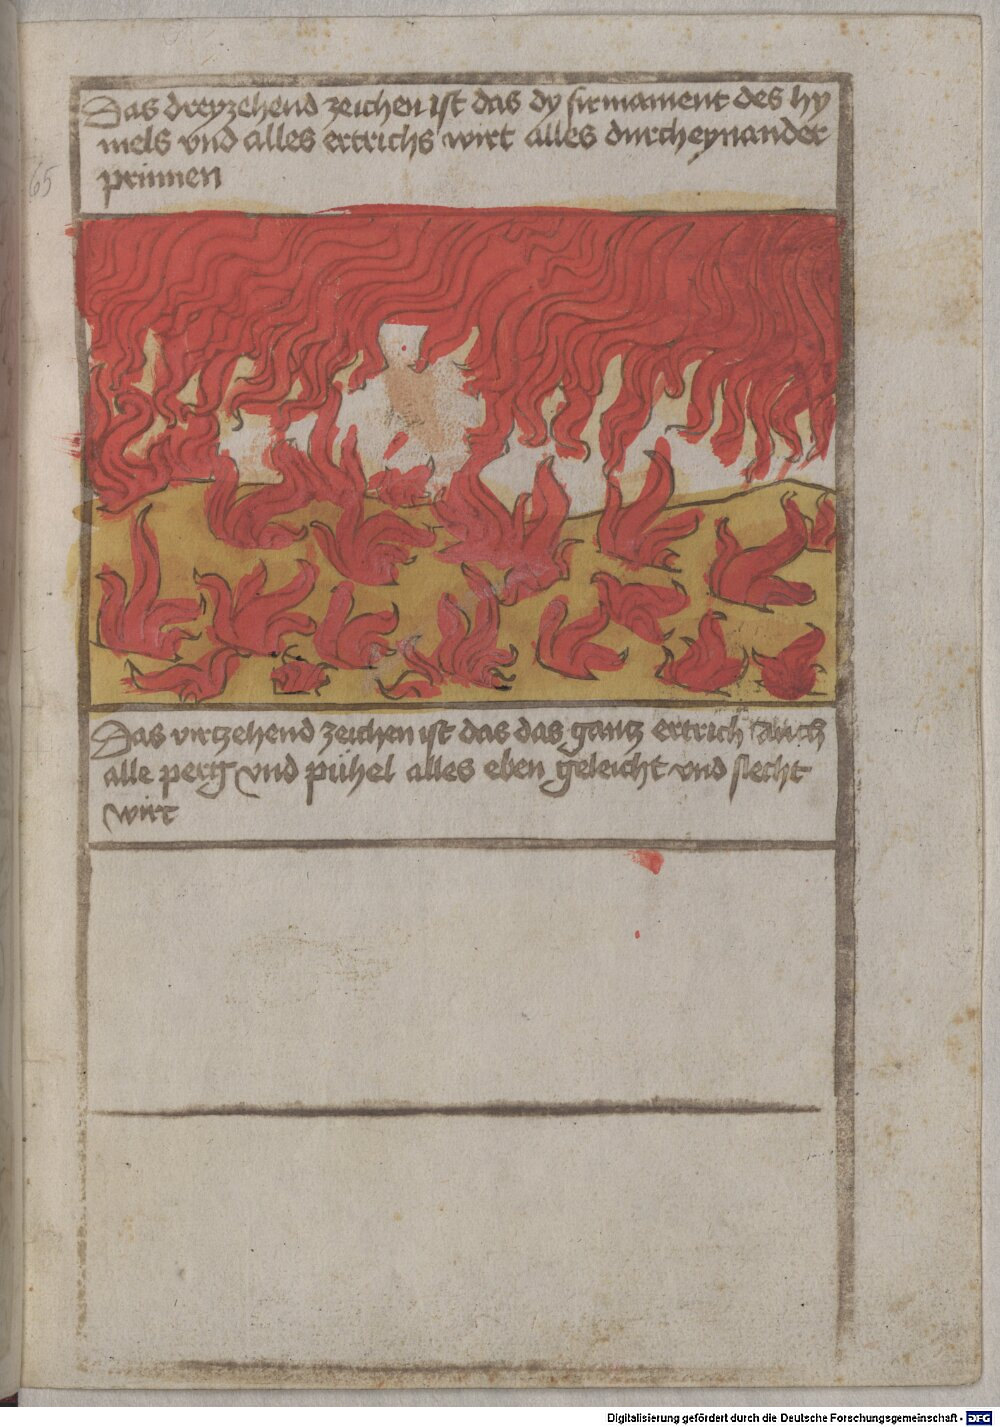 65
Das dreyzehend zeichen ist das dy firmament des hy
mels vnd alles ertrichs wirt alles durcheynander
prinnen
Das virtzehend zeichen ist das das gantz ertrich Auch
alle perg vnd pühel alles eben geleicht vnd slecht
wirt
Digitalisierung gefördert durch die Deutsche Forschungsgemeinschaft - DFG